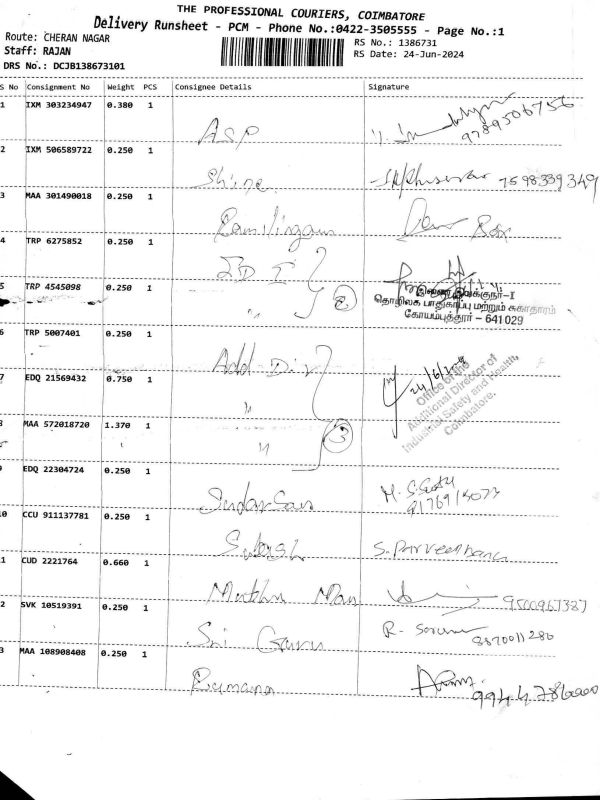 THE PROFESSIONAL COURIERS, COIMBATORE
Delivery Runsheet - PCM - Phone No.:0422-3505555 - Page No.:1
Route: CHERAN NAGAR
RS No.: 1386731
Staff: RAJAN
RS Date: 24-Jun-2024
DRS No.: DCJB138673101
S No Consignment No Weight PCS Consignee Details Signature
1 IXM 303234947 0.380 1
ASP
9789506756
2 IXM 506589722 0.250 1
Shine
7598339349
3 MAA 301490018 0.250 1
Ramilingam
4 TRP 6275852 0.250 1
JD I
இணை இயக்குநர்-I
5 TRP 4545098 0.250 1
" 2
தொழிலக பாதுகாப்பு மற்றும் சுகாதாரம்
கோயம்புத்தூர் - 641 029
6 TRP 5007401 0.250 1
Add. Dir
24/6/24
Office of the
Additional Director of
Industrial Safety and Health,
Coimbatore.
7 EDQ 21569432 0.750 1
"
8 MAA 572018720 1.370 1
" 3
9 EDQ 22304724 0.250 1
Sudarsan
10 CCU 911137781 0.250 1
Suresh
S. Parveenbanu
11 CUD 2221764 0.660 1
Muthu
9500967387
2 SVK 10519391 0.250 1
Sri Guru
8870011280
3 MAA 108908408 0.250 1
Ramana